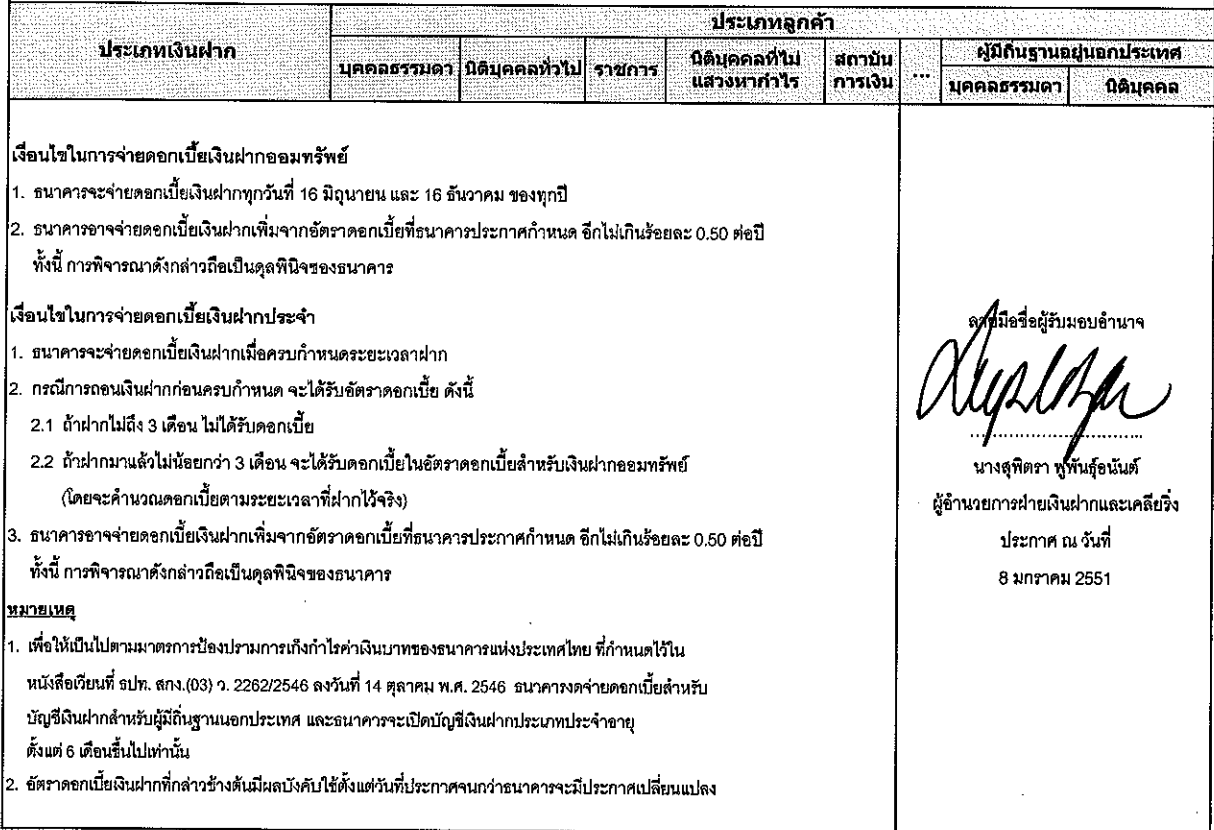 ประเภทเงินฝาก
ประเภทลูกค้า
บุคคลธรรมดา นิติบุคคลทั่วไป ราชการ นิติบุคคลที่ไม่แสวงหากำไร สถาบันการเงิน ... ผู้มีถิ่นฐานอยู่นอกประเทศ
บุคคลธรรมดา นิติบุคคล
เงื่อนไขในการจ่ายดอกเบี้ยเงินฝากออมทรัพย์
1. ธนาคารจะจ่ายดอกเบี้ยเงินฝากทุกวันที่ 16 มิถุนายน และ 16 ธันวาคม ของทุกปี
2. ธนาคารอาจจ่ายดอกเบี้ยเงินฝากเพิ่มจากอัตราดอกเบี้ยที่ธนาคารประกาศกำหนด อีกไม่เกินร้อยละ 0.50 ต่อปี
ทั้งนี้ การพิจารณาดังกล่าวถือเป็นดุลพินิจของธนาคาร
เงื่อนไขในการจ่ายดอกเบี้ยเงินฝากประจำ
1. ธนาคารจะจ่ายดอกเบี้ยเงินฝากเมื่อครบกำหนดระยะเวลาฝาก
2. กรณีการถอนเงินฝากก่อนครบกำหนด จะได้รับอัตราดอกเบี้ย ดังนี้
2.1 ถ้าฝากไม่ถึง 3 เดือน ไม่ได้รับดอกเบี้ย
2.2 ถ้าฝากมาแล้วไม่น้อยกว่า 3 เดือน จะได้รับดอกเบี้ยในอัตราดอกเบี้ยสำหรับเงินฝากออมทรัพย์
(โดยจะคำนวณดอกเบี้ยตามระยะเวลาที่ฝากไว้จริง)
3. ธนาคารอาจจ่ายดอกเบี้ยเงินฝากเพิ่มจากอัตราดอกเบี้ยที่ธนาคารประกาศกำหนด อีกไม่เกินร้อยละ 0.50 ต่อปี
ทั้งนี้ การพิจารณาดังกล่าวถือเป็นดุลพินิจของธนาคาร
หมายเหตุ
1. เพื่อให้เป็นไปตามมาตรการป้องปรามการเก็งกำไรค่าเงินบาทของธนาคารแห่งประเทศไทย ที่กำหนดไว้ใน
หนังสือเวียนที่ ธปท. สกง.(03) ว. 2262/2546 ลงวันที่ 14 ตุลาคม พ.ศ. 2546 ธนาคารงดจ่ายดอกเบี้ยสำหรับ
บัญชีเงินฝากสำหรับผู้มีถิ่นฐานนอกประเทศ และธนาคารจะเปิดบัญชีเงินฝากประเภทประจำอายุ
ตั้งแต่ 6 เดือนขึ้นไปเท่านั้น
2. อัตราดอกเบี้ยเงินฝากที่กล่าวข้างต้นมีผลบังคับใช้ตั้งแต่วันที่ประกาศจนกว่าธนาคารจะมีประกาศเปลี่ยนแปลง
ลายมือชื่อผู้รับมอบอำนาจ
นางสุพิตรา พูพันธุ์อนันต์
ผู้อำนวยการฝ่ายเงินฝากและเคลียริ่ง
ประกาศ ณ วันที่
8 มกราคม 2551